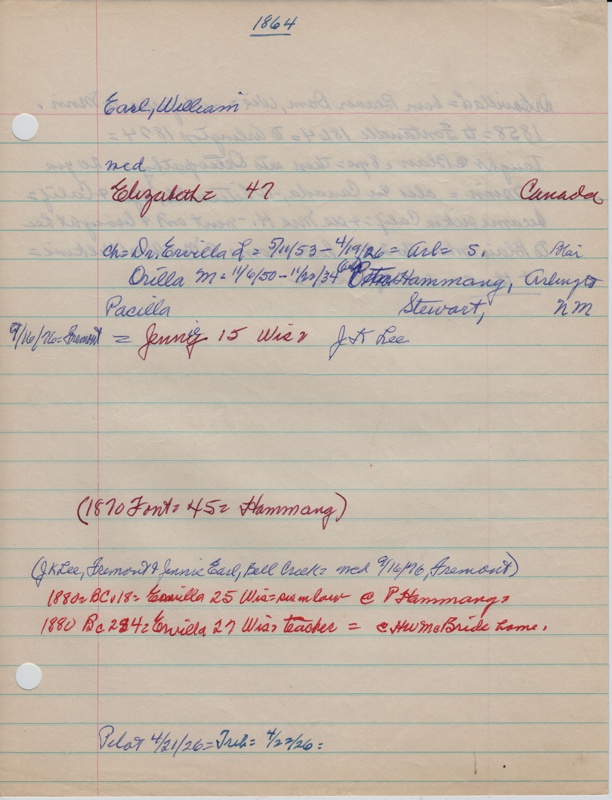 1864
Earl, William
med
Elizabeth = 47 Canada
ch = Dr. Ervilla L = 5/11/53 - 4/19/26 = Arl = S. Blair
Orilla M = 11/6/50 - 11/22/34 Hammang, Arlingt
Pacilla Stewart, NM
9/16/76 = Fremont = Jennie 15 Wis = J K Lee
(1870 Font = 45 = Hammang)
(J K Lee, Fremont & Jennie Earl, Bell Creek = med 9/16/76, Fremont)
1880 = BC 18 = Ervilla 25 Wis = sisinlaw @ P Hammang =
1880 BC 234 = Ervilla 27 Wis = teacher = @ HW McBride home.
Pilot 4/21/26 = Trib = 4/22/26 =